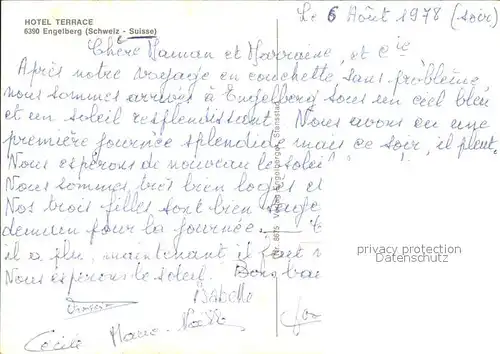 HOTEL TERRACE
6390 Engelberg (Schweiz - Suisse)
Le 6 Août 1978 (soir)
Chère Maman et Marraine, et Cie
Après notre voyage en couchette sans problème,
nous sommes arrivés à Engelberg sous un ciel bleu
et un soleil resplendissant. Nous avons eu une
première journée splendide mais ce soir, il pleut.
Nous espérons de nouveau le soleil
Nous sommes très bien logés et
Nos trois filles sont bien sages
demain pour la journée.
il a plu, maintenant il faut
Nous espérons le soleil. Bons bai
Isabelle
Cécile Marie-Noëlle
privacy protection
for AK-Ansichtskarten